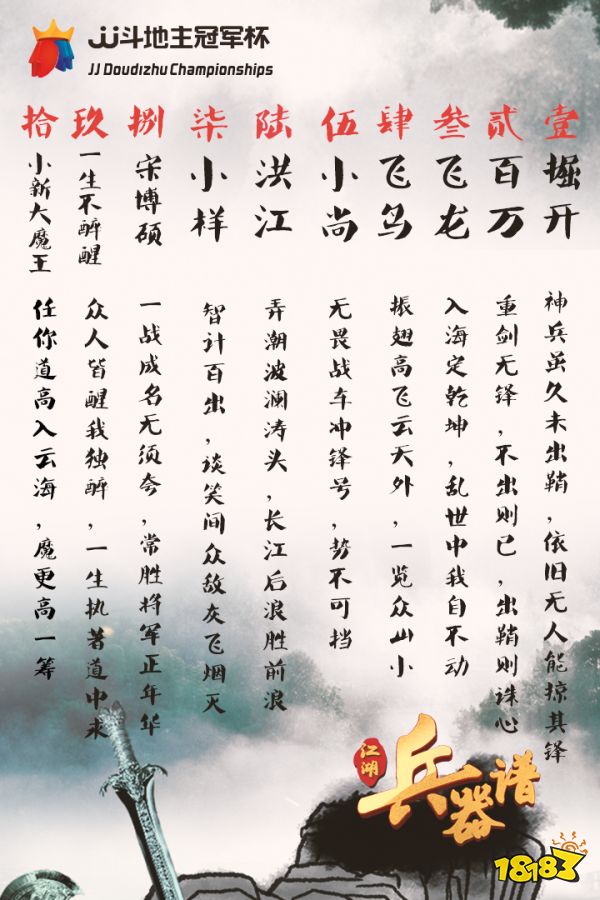 JJ斗地主冠军杯
JJ Doudizhu Championships
壹
掘开
神兵虽久未出鞘，依旧无人能掠其锋
贰
百万
重剑无锋，不出则已，出鞘则诛心
叁
飞龙
入海定乾坤，乱世中我自不动
肆
飞鸟
振翅高飞云天外，一览众山小
伍
小尚
无畏战车冲锋号，势不可挡
陆
洪江
弄潮波澜涛头，长江后浪胜前浪
柒
小样
智计百出，谈笑间众敌灰飞烟灭
捌
宋博硕
一战成名无须夸，常胜将军正年华
玖
一生不醉醒
众人皆醒我独醉，一生执著道中求
拾
小新大魔王
任你道高入云海，魔更高一筹
江湖
兵器谱
18183